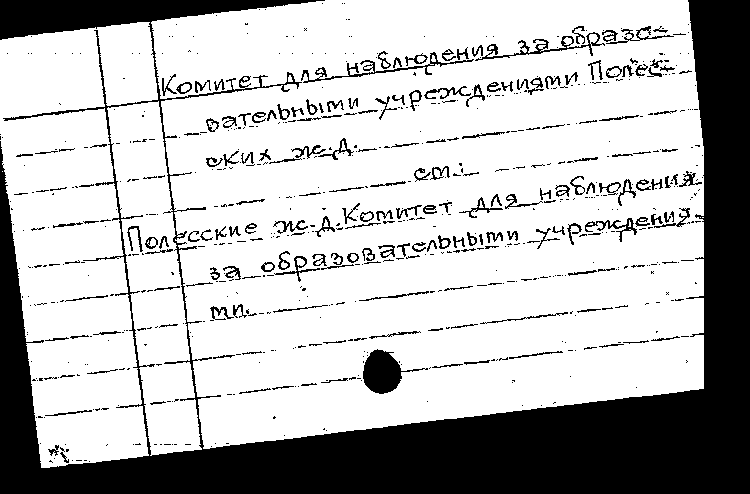 Комитет для наблюдения за образо-
вательными учреждениями Полес-
ских ж.д.
см.:
Полесские ж.д. Комитет для наблюдения
за образовательными учреждения-
ми.